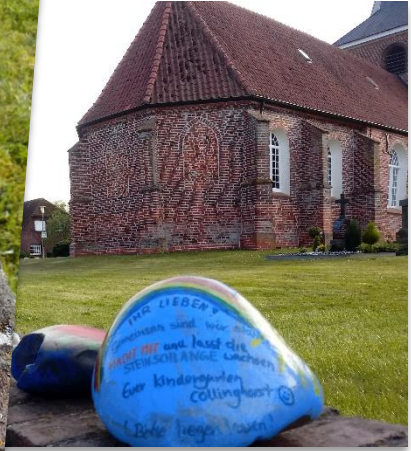 IHR LIEBEN!
Gemeinsam sind wir stark
MACHT MIT und lasst die
STEINSCHLANGE wachsen
Euer Kindergarten
Collinghorst
Bitte liegen lassen!